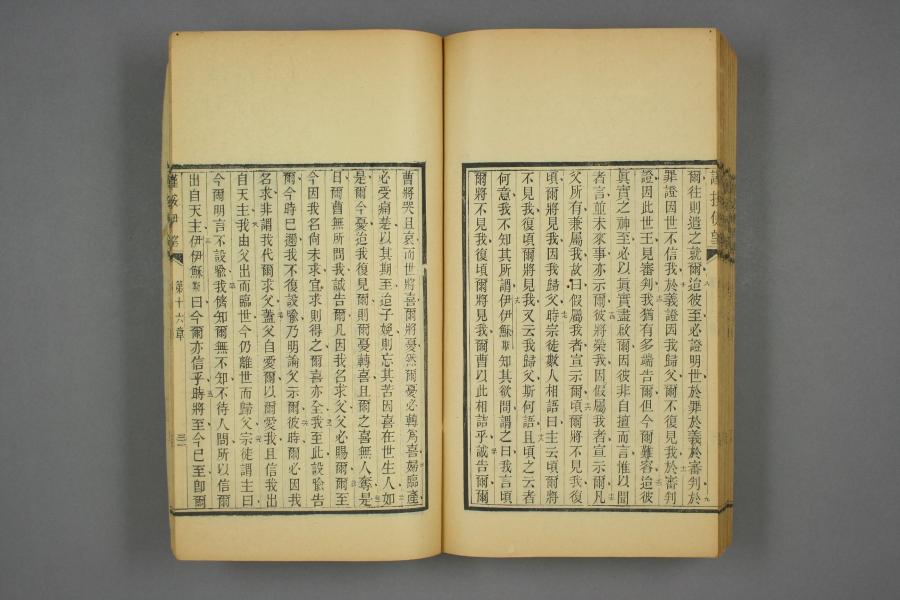 爾往則遣之就爾迨彼至必證明世於罪於義於審判於
罪證因世不信我於義證因我歸父爾不復見我於審判
證因此世王見審判我猶有多端告爾但今爾難容迨彼
眞實之神至必以眞實盡啟爾因彼非自擅而言推以聞
者言並未來事亦示爾彼將榮我因假屬我者宣示爾凡
父所有兼屬我故曰假屬我者宣示爾頃爾將不見我復
頃爾將見我因我歸父時宗徒數人相語曰主云頃爾將
不見我復頃爾將見我又云我歸父斯何語且頃之云者
何意我不知其所謂伊伊穌斯知其欲問謂之曰我言頃
爾將不見我復頃爾將見我爾曹以此相詰乎誠告爾爾
曹將哭且哀而世將喜爾將憂然爾憂必轉為喜婦臨產
必受痛楚以其期至迨子娩則忘其苦因喜在世生人如
是爾今憂迨我復見爾則爾憂轉喜且爾之喜無人奪是
日爾曹無所問我誠告爾凡因我名求父父必賜爾爾至
今因我名尚未求宜求則得之爾喜亦全我至此設喩告
爾今時已邇我不復設喩乃明論父示爾彼時爾必因我
名求非謂我代爾求父蓋父自愛爾以爾愛我且信我出
自天主我由父出而臨世今仍離世而歸父宗徒謂主曰
今爾明言不設喩我儕知爾無不知不待人問所以信爾
出自天主伊伊穌斯曰今爾亦信乎時將至今已至卽爾
第十六章